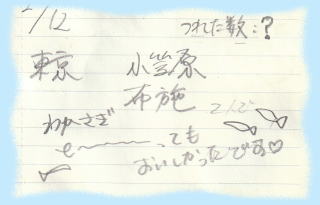 /12
つれた数:?
東京 小笠原
布施
わかさぎ
e〜〜〜っても
おいしかったです♡